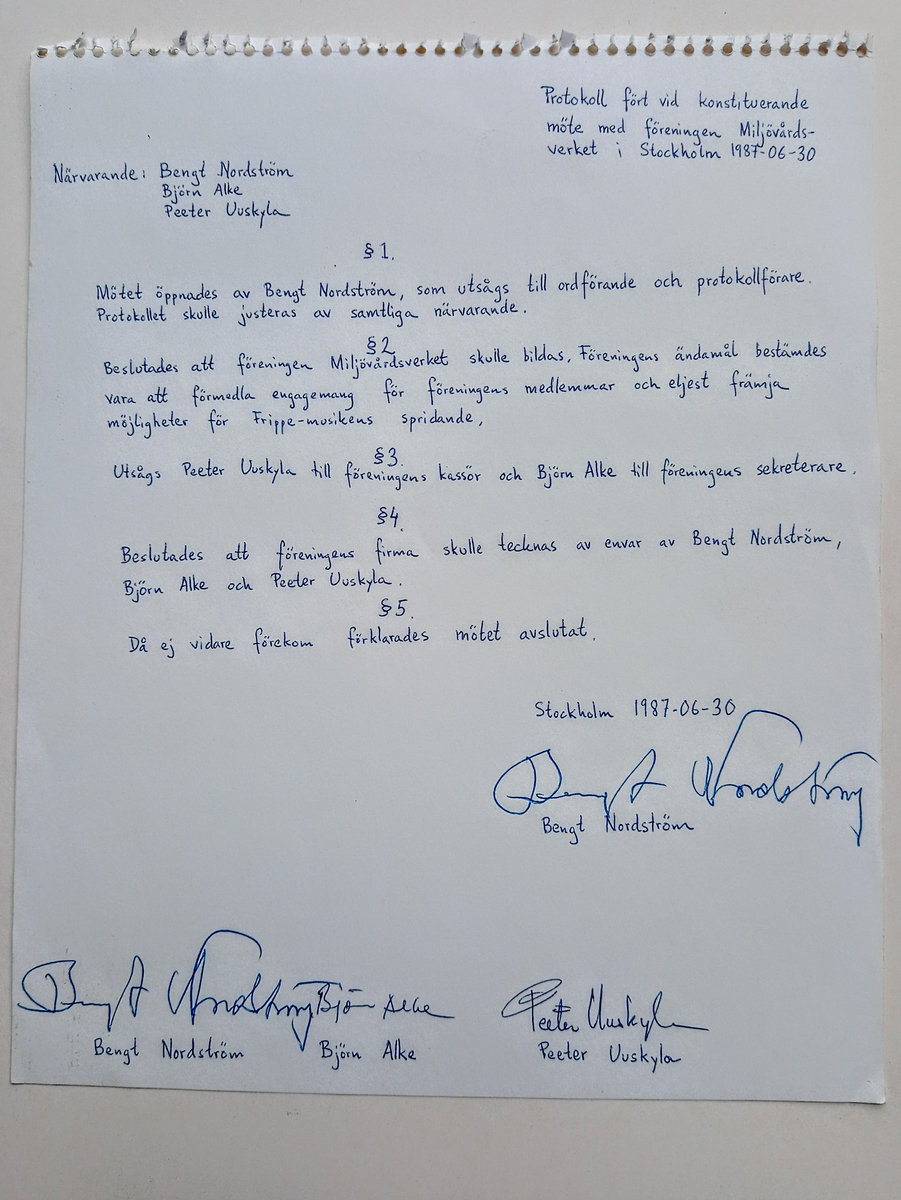 Protokoll fört vid konstituerande
möte med föreningen Miljövårds-
verket i Stockholm 1987-06-30
Närvarande: Bengt Nordström
Björn Alke
Peeter Uuskyla
§ 1.
Mötet öppnades av Bengt Nordström, som utsågs till ordförande och protokollförare.
Protokollet skulle justeras av samtliga närvarande.
§ 2
Beslutades att föreningen Miljövårdsverket skulle bildas. Föreningens ändamål bestämdes
vara att förmedla engagemang för föreningens medlemmar och eljest främja
möjligheter för Frippe-musikens spridande,
§ 3.
Utsågs Peeter Uuskyla till föreningens kassör och Björn Alke till föreningens sekreterare.
§ 4.
Beslutades att föreningens firma skulle tecknas av envar av Bengt Nordström,
Björn Alke och Peeter Uuskyla.
§ 5.
Då ej vidare förekom förklarades mötet avslutat.
Stockholm 1987-06-30
Bengt Nordström
Bengt Nordström
Bengt Nordström Björn Alke Peeter Uuskyla
Bengt Nordström Björn Alke Peeter Uuskyla